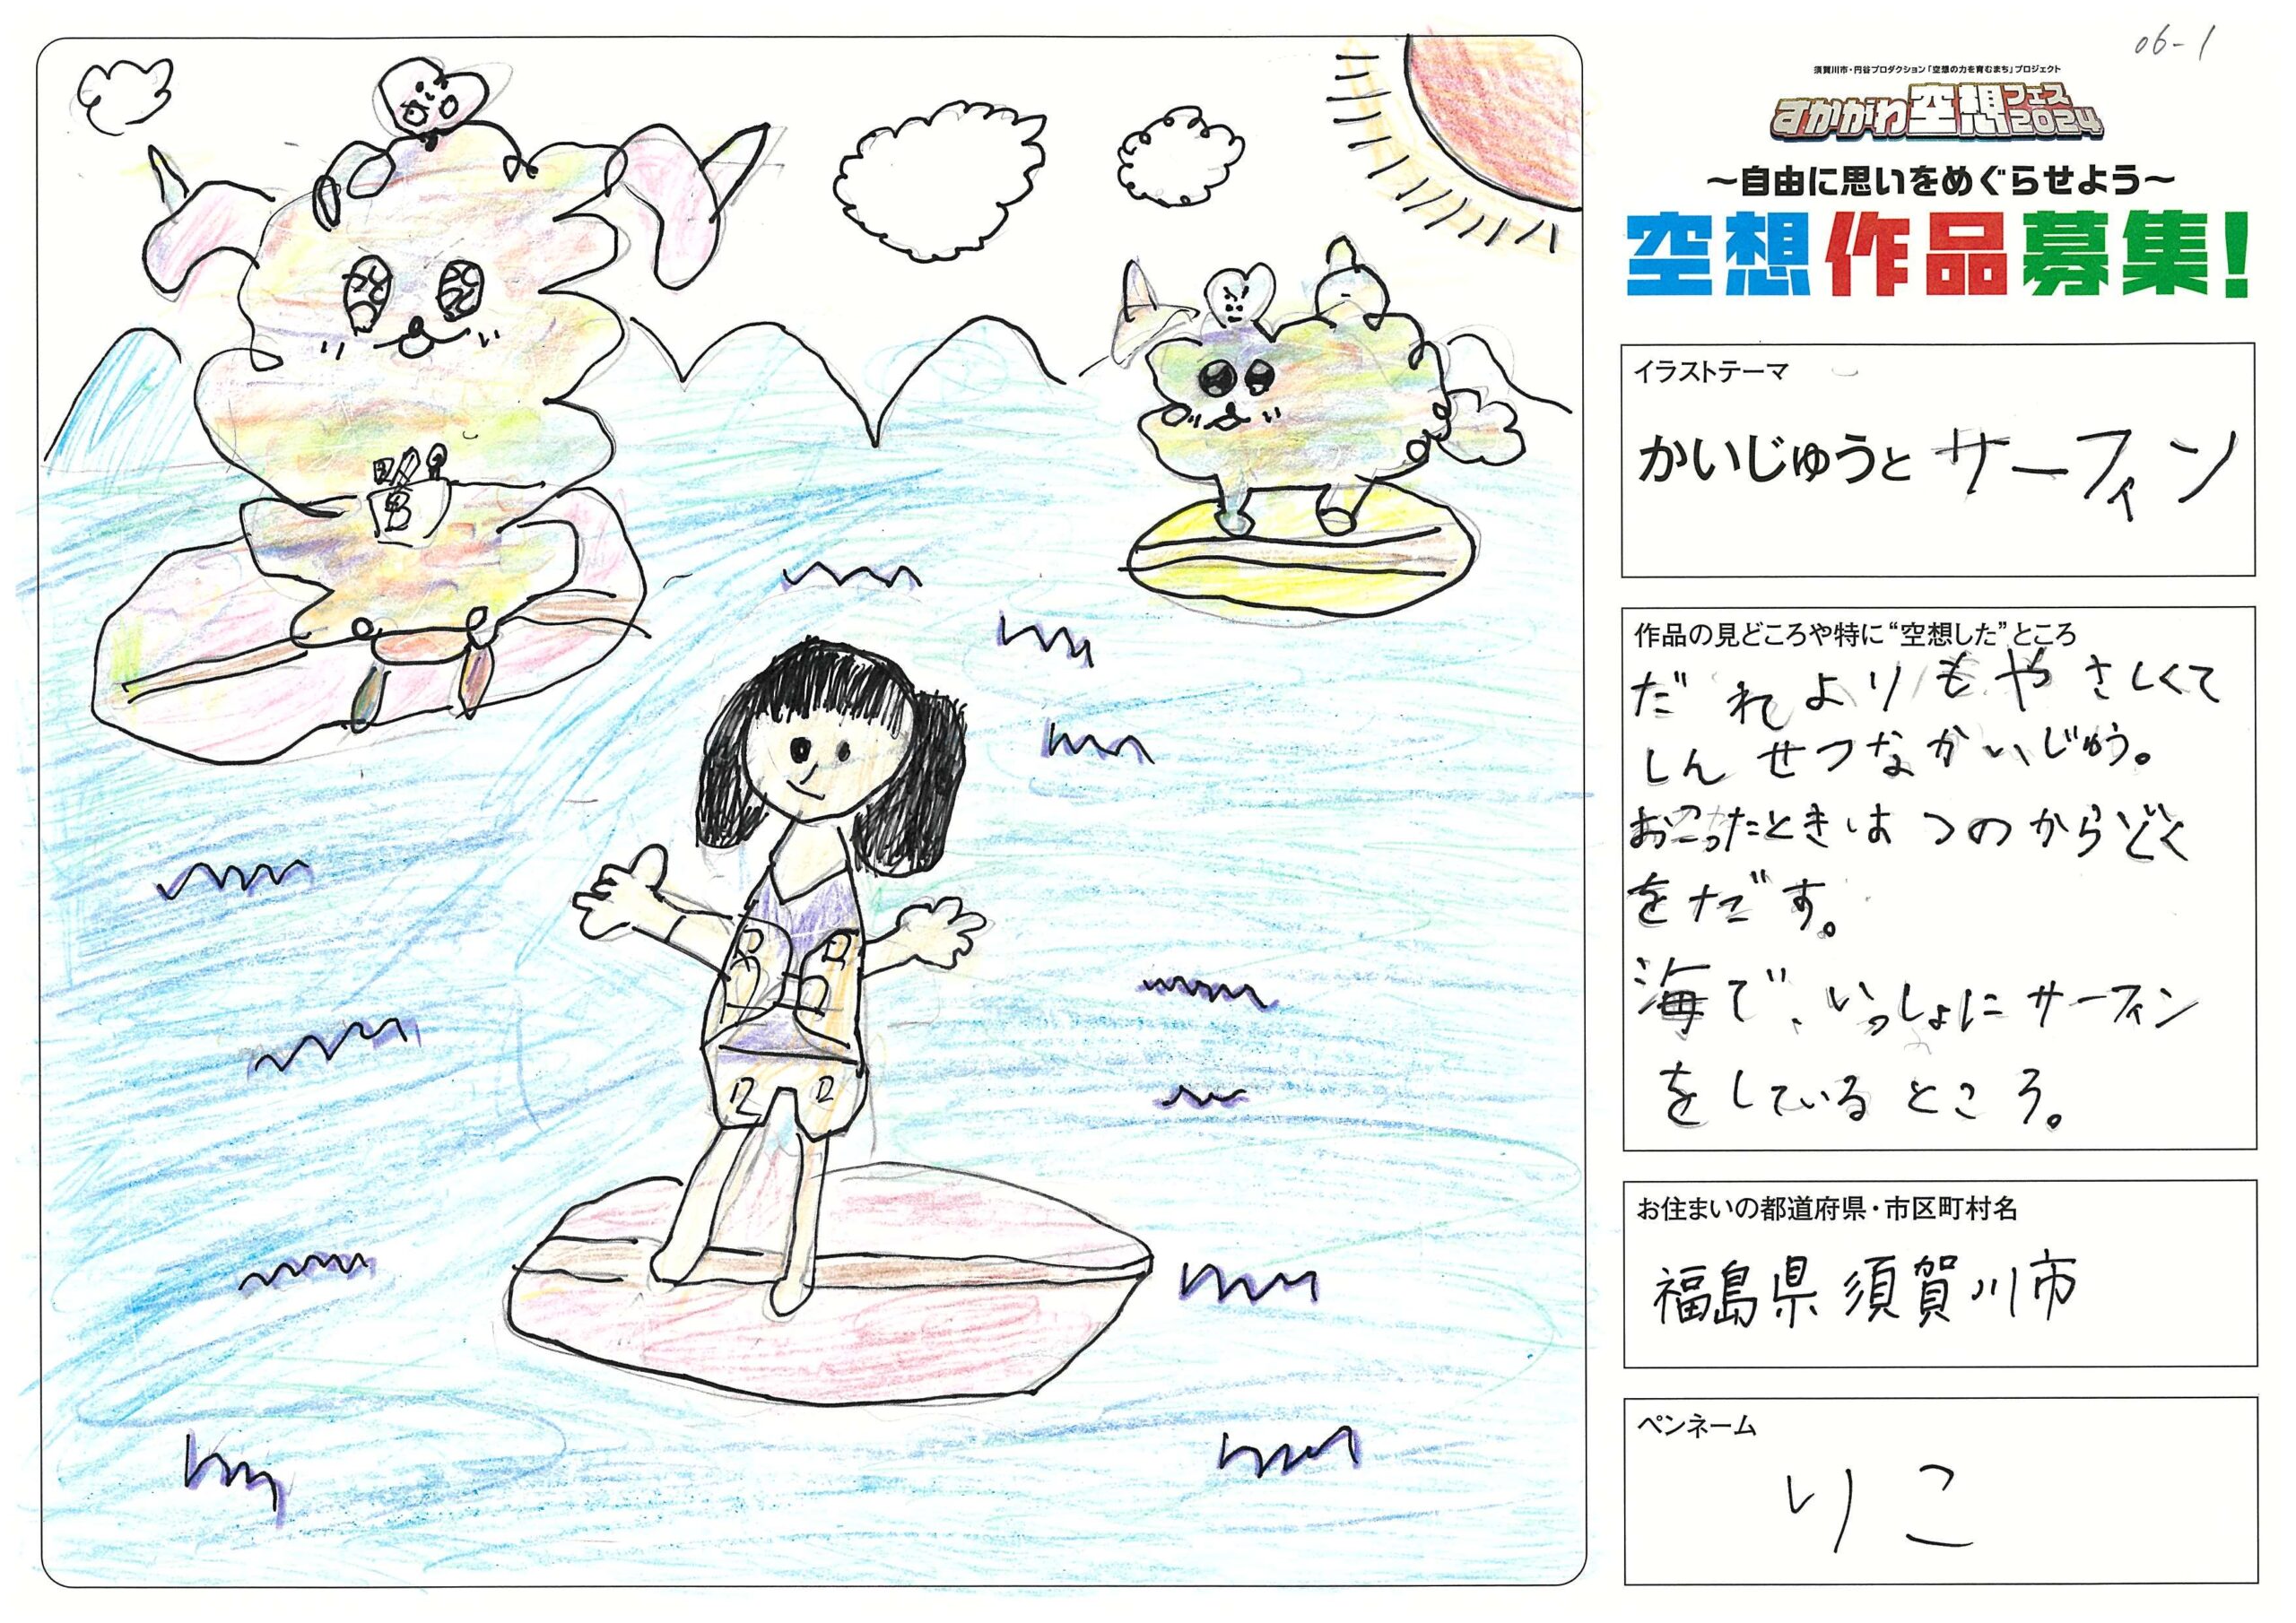 06-1
須賀川市・円谷プロダクション「空想の力を育むまち」プロジェクト
すかがわ空想フェス2024
~自由に思いをめぐらせよう~
空想作品募集!
イラストテーマ
かいじゅうと サーフィン
作品の見どころや特に“空想した”ところ
だれよりもやさしくて
しんせつなかいじゅう。
おこったときはつのからどく
をだす。
海で、いっしょにサーフィン
をしているところ。
お住まいの都道府県・市区町村名
福島県須賀川市
ペンネーム
りこ